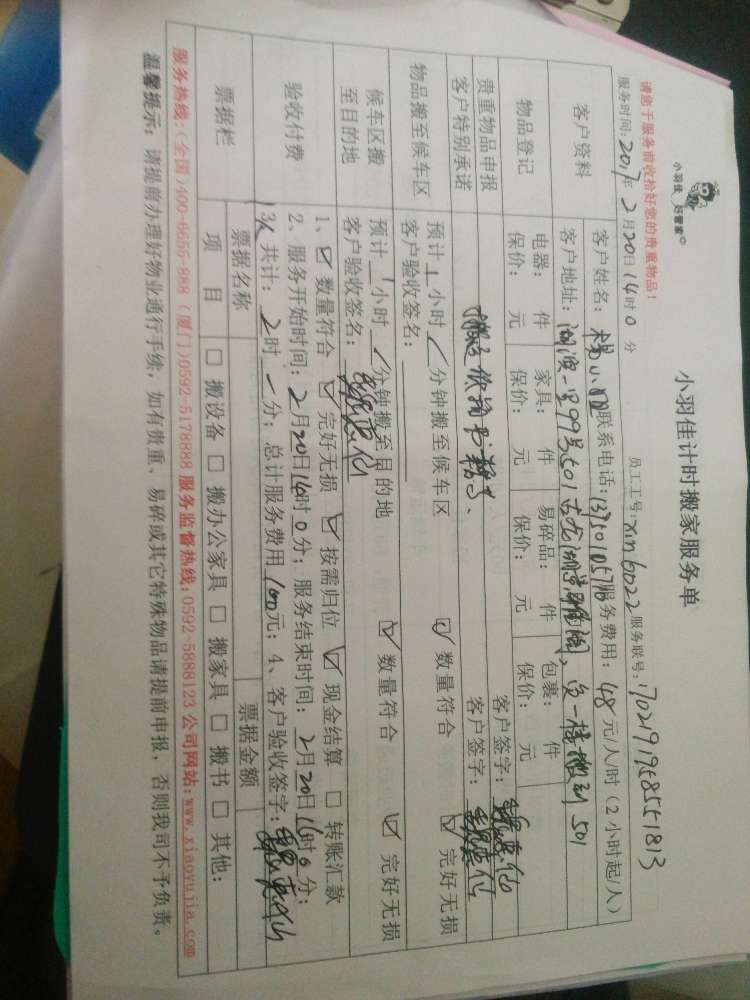 小羽佳 好管家
小羽佳计时搬家服务单
请您于服务前收拾好您的贵重物品！
员工工号：xm6022 服务联号：1702191958551813
服务时间：2017年2月20日14时0分
客户资料
客户姓名：杨小 联系电话： 服务费用：48元/人/时（2小时起/人）
客户地址： 一里99号501 搬到501
物品登记
电器： 件 家具： 件 易碎品： 件 包裹： 件
保价： 元 保价： 元 保价： 元 保价： 元
贵重物品申报 客户签字：
客户特别承诺 客户签字：
物品搬至候车区
预计1小时/分钟搬至候车区 ☑ 数量符合 ☑ 完好无损
客户验收签名：
候车区搬至目的地
预计1小时/分钟搬至目的地 ☑ 数量符合 ☑ 完好无损
客户验收签名：
验收付费
1、☑ 数量符合 ☑ 完好无损 ☑ 按需归位 ☑ 现金结算 □ 转账汇款
2、服务开始时间：2月20日14时0分；服务结束时间：2月20日16时0分；
3、共计：2时-分；总计服务费用 元；4、客户验收签字：
票据栏
票据名称 票据金额
项 目 □ 搬设备 □ 搬办公家具 □ 搬家具 □ 搬书 □ 其他：
服务热线：（全国）400-6655-888（厦门）0592-5178888 服务监督热线：0592-5888123 公司网站：www.xiaoyujia.com
温馨提示：请提前办理好物业通行手续，如有贵重、易碎或其它特殊物品请提前申报，否则我司不予负责。